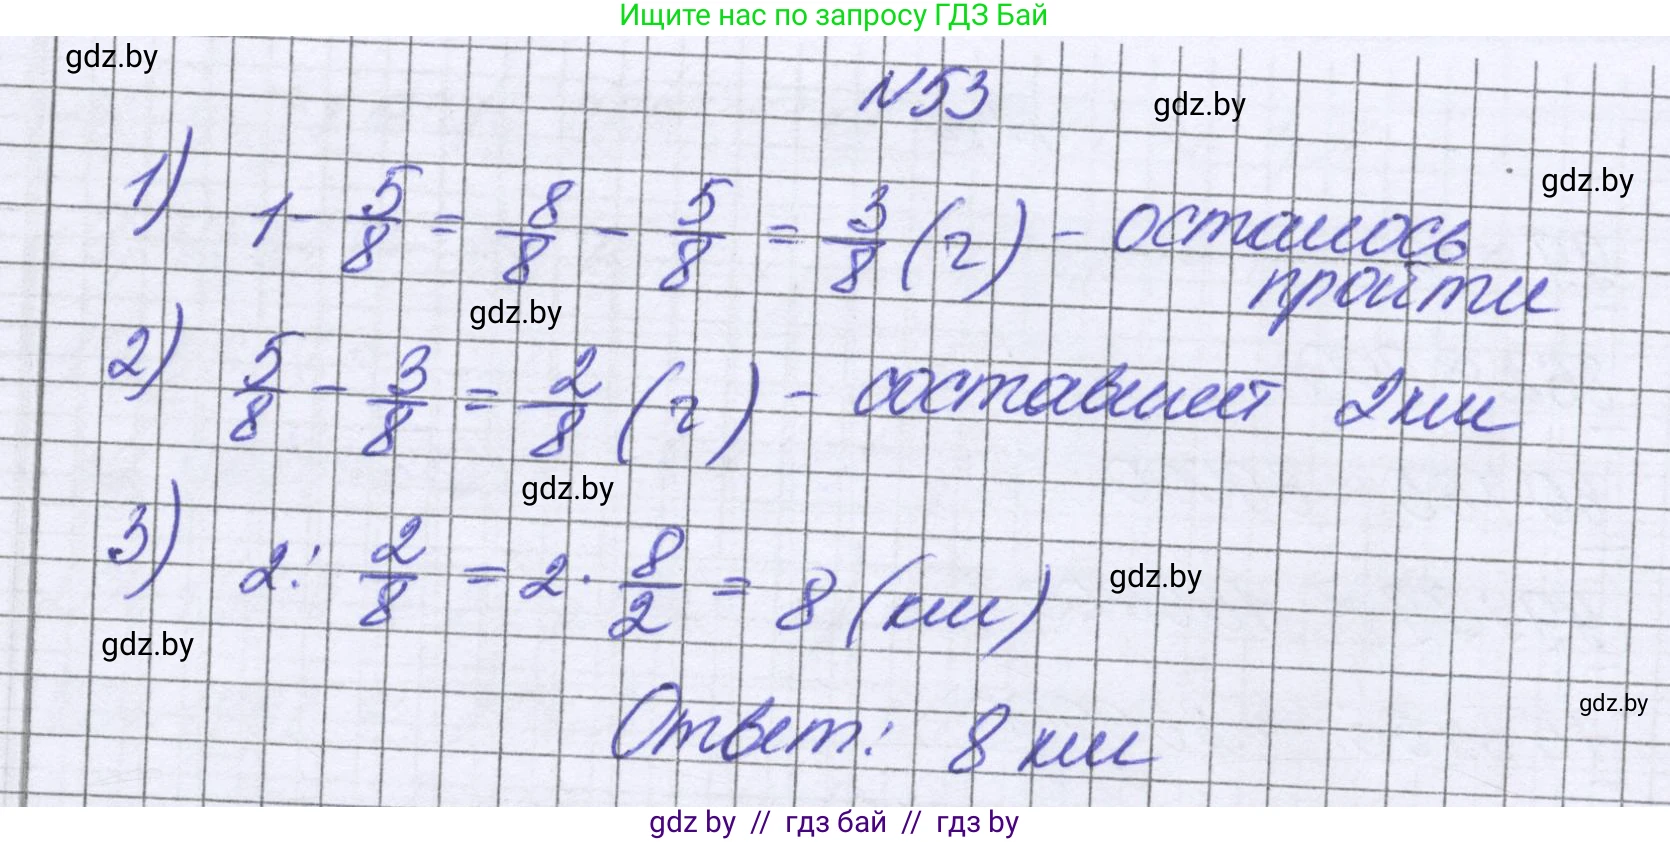 Ищите нас по запросу ГДЗ Бай
gdz.by
N53
gdz.by
gdz.by
1) 1 - 5/8 = 8/8 - 5/8 = 3/8 (ч) - осталось
пройти
gdz.by
2) 5/8 - 3/8 = 2/8 (ч) - составляет 2 км
gdz.by
3) 2 : 2/8 = 2 · 8/2 = 8 (км)
gdz.by
gdz.by
gdz.by
Ответ: 8 км
gdz by // гдз бай // гдз by